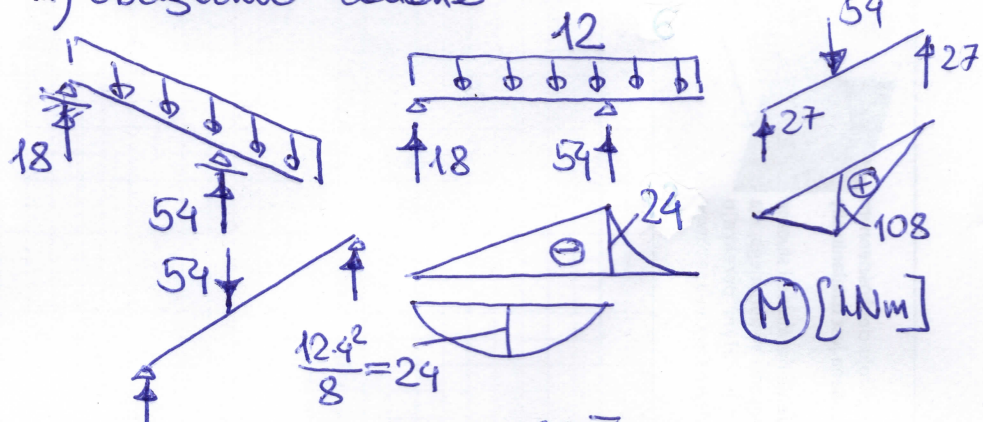 12
54
27
27
18
54
18
54
24
⊖
⊕
108
54
M [kNm]
12·4²/8=24